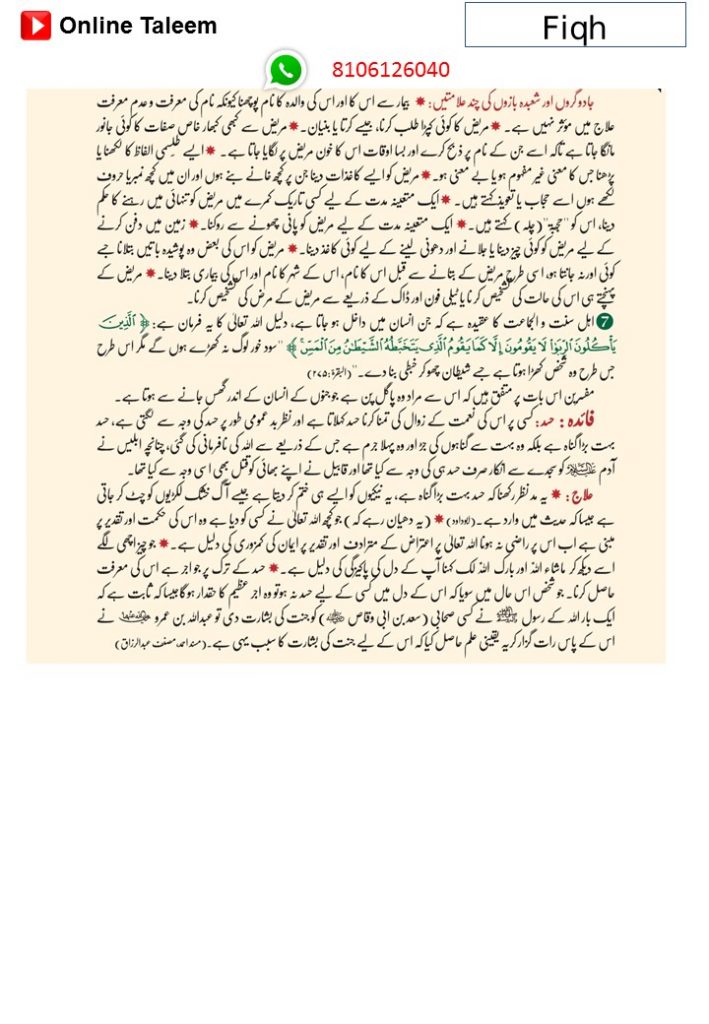 Online Taleem
Fiqh
8106126040
جادوگروں اور شعبدہ بازوں کی چند علامتیں: * بیمار سے اس کا اور اس کی والدہ کا نام پوچھنا کیونکہ نام کی معرفت و عدم معرفت
علاج میں مؤثر نہیں ہے۔ * مریض کا کوئی کپڑا طلب کرنا، جیسے کرتا یا بنیان۔ * مریض سے کبھی کبھار خاص صفات کا کوئی جانور
مانگا جاتا ہے تاکہ اسے جن کے نام پر ذبح کرے اور بسا اوقات اس کا خون مریض پر لگایا جاتا ہے۔ * ایسے طلسمی الفاظ کا لکھنا یا
پڑھنا جس کا معنی غیر مفہوم ہو یا بے معنی ہو۔ * مریض کو ایسے کاغذات دینا جن پر کچھ خانے بنے ہوں اور ان میں کچھ نمبر یا حروف
لکھے ہوں اسے حجاب یا تعویذ کہتے ہیں۔ * ایک متعینہ مدت کے لیے کسی تاریک کمرے میں مریض کو تنہائی میں رہنے کا حکم
دینا، اس کو "حجبۃ" (چلہ) کہتے ہیں۔ * ایک متعینہ مدت کے لیے مریض کو پانی چھونے سے روکنا۔ * زمین میں دفن کرنے
کے لیے مریض کو کوئی چیز دینا یا جلانے اور دھونی لینے کے لیے کوئی کاغذ دینا۔ * مریض کو اس کی بعض وہ پوشیدہ باتیں بتلانا جسے
کوئی اور نہ جانتا ہو، اسی طرح مریض کے بتانے سے قبل اس کا نام، اس کے شہر کا نام اور اس کی بیماری بتلا دینا۔ * مریض کے
پہنچتے ہی اس کی حالت کی تشخیص کرنا یا ٹیلی فون اور ڈاک کے ذریعے سے مریض کے مرض کی تشخیص کرنا۔
7 اہل سنت و الجماعت کا عقیدہ ہے کہ جن انسان میں داخل ہو جاتا ہے، دلیل اللہ تعالیٰ کا یہ فرمان ہے: ﴿ ٱلَّذِينَ
يَأْكُلُونَ ٱلرِّبَوٰا۟ لَا يَقُومُونَ إِلَّا كَمَا يَقُومُ ٱلَّذِى يَتَخَبَّطُهُ ٱلشَّيْطَـٰنُ مِنَ ٱلْمَسِّ ۚ ﴾ "سود خور لوگ نہ کھڑے ہوں گے مگر اس طرح
جس طرح وہ شخص کھڑا ہوتا ہے جسے شیطان چھو کر خبطی بنا دے۔" (البقرة: ۲۷۵)
مفسرین اس بات پر متفق ہیں کہ اس سے مراد وہ پاگل پن ہے جو جنوں کے انسان کے اندر گھس جانے سے ہوتا ہے۔
فائدہ : حسد: کسی پر اس کی نعمت کے زوال کی تمنا کرنا حسد کہلاتا ہے اور نظر بد عمومی طور پر حسد کی وجہ سے لگتی ہے، حسد
بہت بڑا گناہ ہے بلکہ وہ بہت سے گناہوں کی جڑ اور وہ پہلا جرم ہے جس کے ذریعے سے اللہ کی نافرمانی کی گئی، چنانچہ ابلیس نے
آدم علیہ السلام کو سجدے سے انکار صرف حسد ہی کی وجہ سے کیا تھا اور قابیل نے اپنے بھائی کو قتل بھی اسی وجہ سے کیا تھا۔
علاج : * یہ مد نظر رکھنا کہ حسد بہت بڑا گناہ ہے، یہ نیکیوں کو ایسے ہی ختم کر دیتا ہے جیسے آگ خشک لکڑیوں کو چٹ کر جاتی
ہے جیسا کہ حدیث میں وارد ہے۔ (ابوداود) * (یہ دھیان رہے کہ) جو کچھ اللہ تعالیٰ نے کسی کو دیا ہے وہ اس کی حکمت اور تقدیر پر
مبنی ہے اب اس پر راضی نہ ہونا اللہ تعالیٰ پر اعتراض کے مترادف اور تقدیر پر ایمان کی کمزوری کی دلیل ہے۔ * جو چیز اچھی لگے
اسے دیکھ کر ماشاء اللہ اور بارک اللہ لک کہنا آپ کے دل کی پاکیزگی کی دلیل ہے۔ * حسد کے ترک پر جو اجر ہے اس کی معرفت
حاصل کرنا۔ جو شخص اس حال میں سویا کہ اس کے دل میں کسی کے لیے حسد نہ ہو تو وہ اجر عظیم کا حقدار ہوگا جیسا کہ ثابت ہے کہ
ایک بار اللہ کے رسول ﷺ نے کسی صحابی (سعد بن ابی وقاص رضی اللہ عنہ) کو جنت کی بشارت دی تو عبداللہ بن عمرو رضی اللہ عنہما نے
اس کے پاس رات گزار کر یہ یقینی علم حاصل کیا کہ اس کے لیے جنت کی بشارت کا سبب یہی ہے۔ (مسند احمد، مصنف عبدالرزاق)